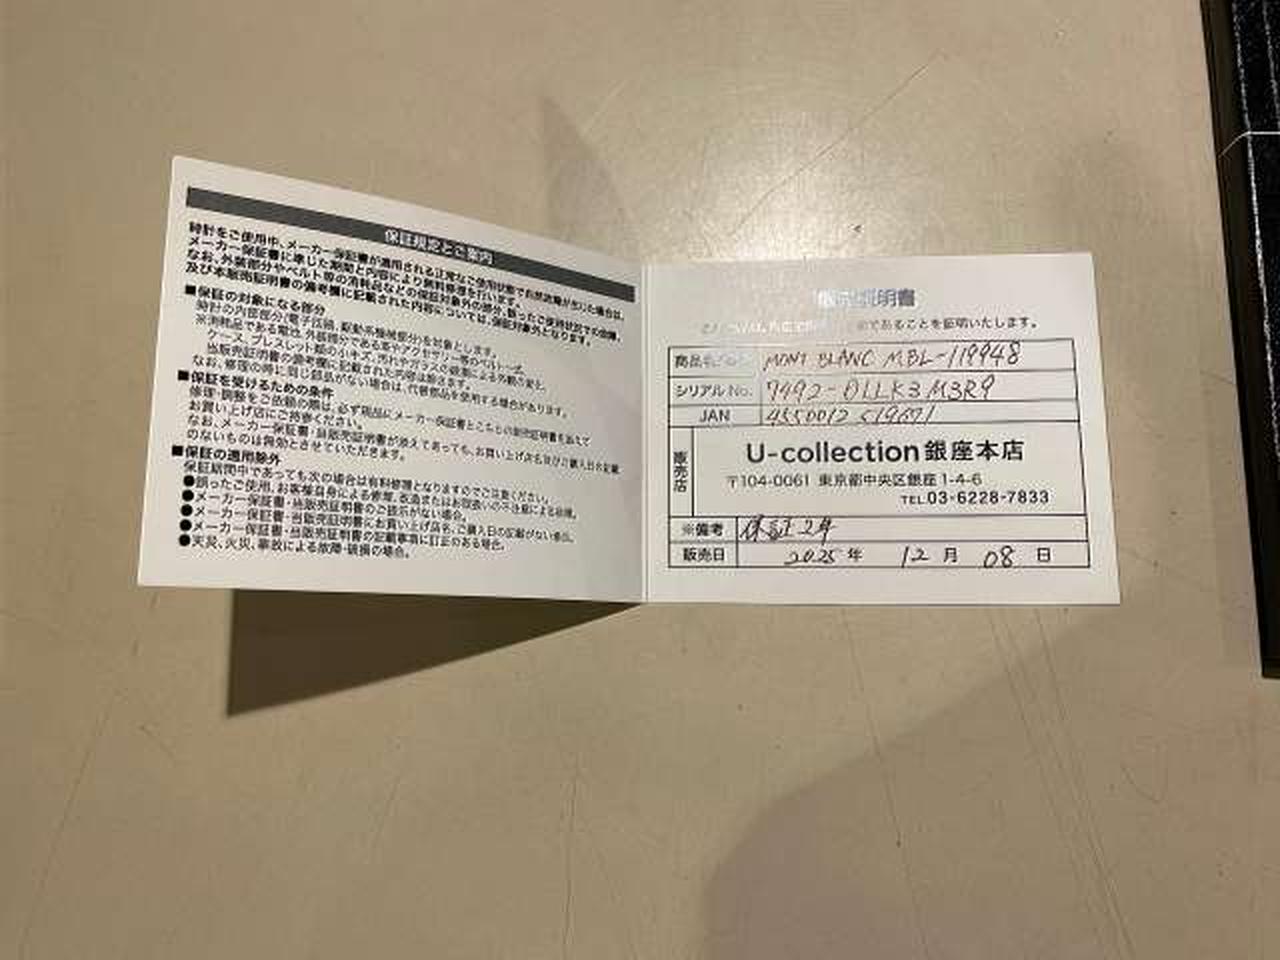 保証規定とご案内
時計をご使用中、メーカー保証書が適用される正常なご使用状態で自然故障が生じた場合は、
メーカー保証書に準じた期間と内容により無料修理を行います。
なお、外装部分やベルト等の消耗品などの保証対象外の部分、誤ったご使用状況での故障、
及び本販売証明書の備考欄に記載された内容については、保証対象外となります。
■保証の対象になる部分
時計の内部部分(電子回路、駆動系機械部分)を対象とします。
※消耗品である電池、外装部分である革やアクセサリー等のベルト一式、
ケース、ブレスレット類の小キズ、汚れやガラスの破損による外観の変化、
当販売証明書の備考欄に記載された内容は除きます。
なお、修理の時に同じ部品がない場合は、代替部品を使用する場合があります。
■保証を受けるための条件
修理・調整をご依頼の際は、必ず現品にメーカー保証書とこちらの販売証明書を添えて
お買い上げ店にご持参ください。
なお、メーカー保証書・当販売証明書が添えてあっても、お買い上げ店名及びご購入日の記載
のないものは無効とさせていただきます。
■保証の適用除外
保証期間中であっても次の場合は有料修理となりますのでご注意ください。
●誤ったご使用、お客様自身による修理、改造またはお取扱いの不注意による故障。
●メーカー保証書・当販売証明書のご提示がない場合。
●メーカー保証書・当販売証明書にお買い上げ店名、ご購入日の記載がない場合。
●メーカー保証書・当販売証明書の記載事項に訂正のある場合。
●天災、火災、事故による故障・破損の場合。
販売証明書
であることを証明いたします。
商品名 MONT BLANC MBL-119948
シリアルNo. 7492-OLLK3M3R9
JAN
販売店
U-collection 銀座本店
〒104-0061 東京都中央区銀座1-4-6
TEL.03-6228-7833
※備考 保証2年
販売日 2025 年 12 月 08 日